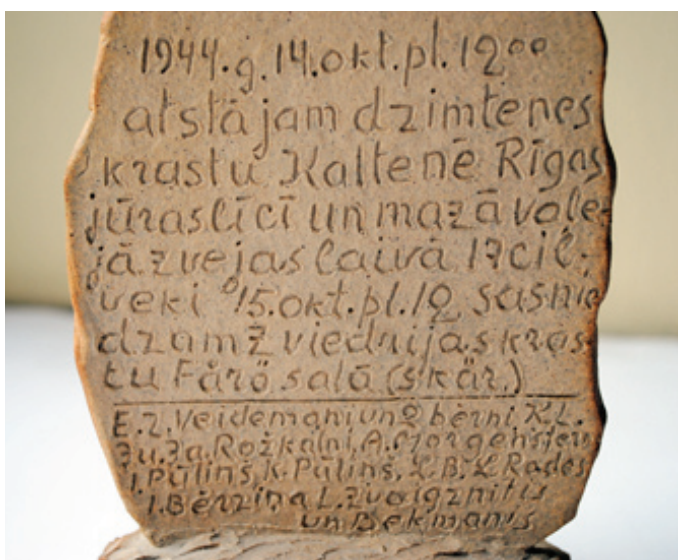 1944.g.14.okt.pl.12⁰⁰
atstājam dzimtenes
krastu Kaltenē Rīgas
jūras līcī un mazā vaļe-
jā zvejas laivā 17 cil-
vēki 15.okt.pl.12 sasnie
dzam Zviedrijas kras-
tu Fårö salā (skär.)
E. Z. Veidemani un 2 bērni K.L.
J. u. Ja. Rožkalni, A. Morgenstern
I. Pūliņš, K. Pūliņš, L. B. L Rades
I. Bērziņa L. Zvaigznītis
un Bekmanis